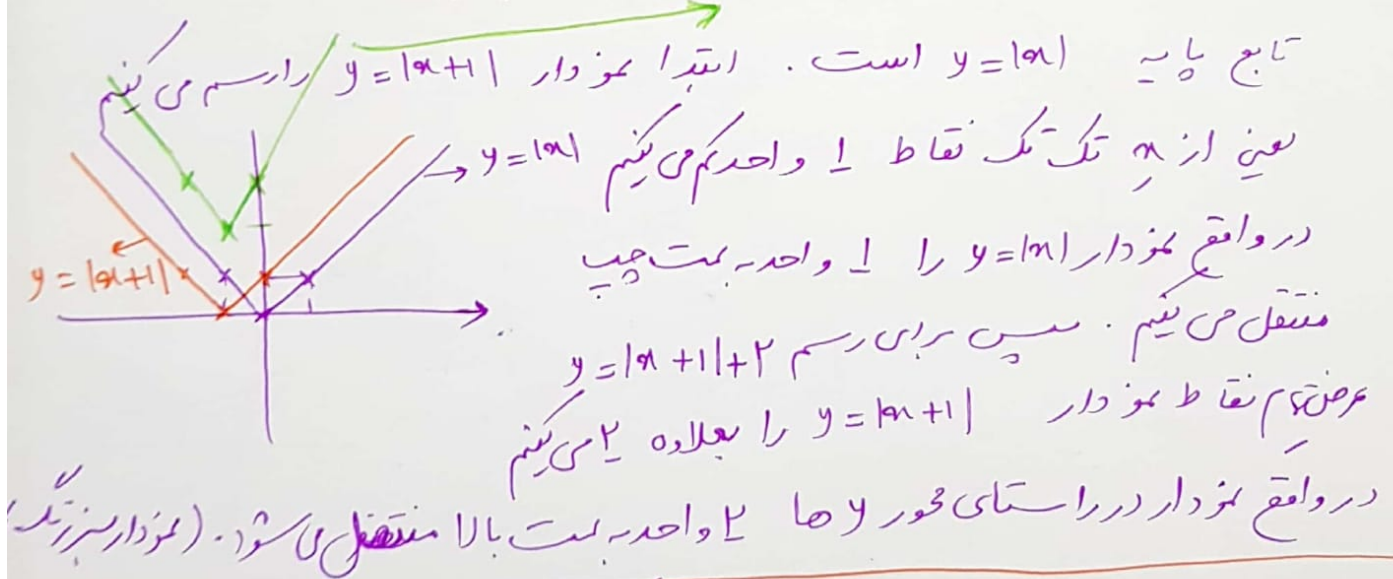 تابع پایه y=|x| است. ابتدا نمودار y=|x+1| را رسم می کنیم
یعنی از x تک تک نقاط 1 واحد کم می کنیم
y=|x|
در واقع نمودار y=|x| را 1 واحد به سمت چپ
y=|x+1|
منتقل می کنیم. سپس برای رسم y=|x+1|+۲
عرض تمام نقاط نمودار y=|x+1| را بعلاوه ۲ می کنیم
در واقع نمودار در راستای محور y ها ۲ واحد به سمت بالا منتقل می شود. (نمودار سبز رنگ)